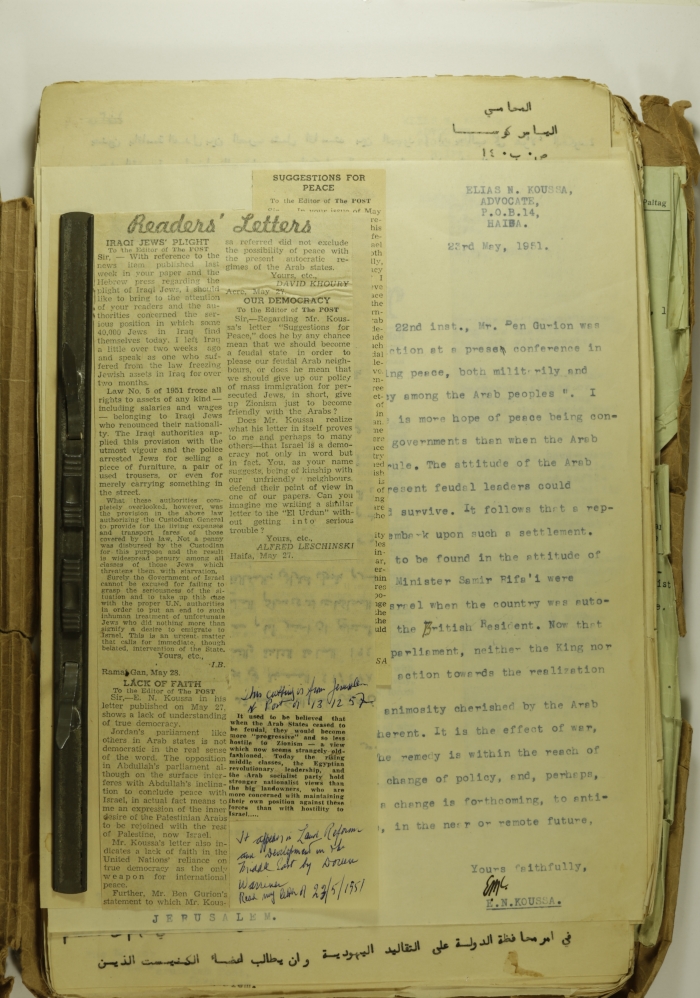 المحامي
الياس كوسا
ص.ب. ١٤
ELIAS N. KOUSSA,
ADVOCATE,
P.O.B.14,
HAIFA.
23rd May, 1951.
Paltag
SUGGESTIONS FOR
PEACE
To the Editor of The POST
in your issue of May
Readers' Letters
IRAQI JEWS' PLIGHT
To the Editor of The POST
Sir, — With reference to the
news item published last
week in your paper and the
Hebrew press regarding the
plight of Iraqi Jews, I should
like to bring to the attention
of your readers and the au-
thorities concerned the ser-
ious position in which some
40,000 Jews in Iraq find
themselves today. I left Iraq
a little over two weeks ago
and speak as one who suf-
fered from the law freezing
Jewish assets in Iraq for over
two months.
Law No. 5 of 1951 froze all
rights to assets of any kind—
including salaries and wages
— belonging to Iraqi Jews
who renounced their nationali-
ty. The Iraqi authorities ap-
plied this provision with the
utmost vigour and the police
arrested Jews for selling a
piece of furniture, a pair of
used trousers, or even for
merely carrying something in
the street.
What these authorities com-
pletely overlooked, however, was
the provision in the above law
authorising the Custodian General
to provide for the living expenses
and transport fares of those
covered by the law. Not a penny
was disbursed by the Custodian
for this purpose and the result
is widespread penury among all
classes of those Jews which
threatens them with starvation.
Surely the Government of Israel
cannot be excused for failing to
grasp the seriousness of the si-
tuation and to take up this case
with the proper U.N. authorities
in order to put an end to such
inhuman treatment of unfortunate
Jews who did nothing more than
signify a desire to emigrate to
Israel. This is an urgent matter
that calls for immediate, though
belated, intervention of the State.
Yours, etc.,
I.B.
Ramat Gan, May 28.
LACK OF FAITH
To the Editor of The POST
Sir,—E. N. Koussa in his
letter published on May 27,
shows a lack of understanding
of true democracy.
Jordan's parliament like
others in Arab states is not
democratic in the real sense
of the word. The opposition
in Abdullah's parliament al-
though on the surface inter-
feres with Abdullah's inclina-
tion to conclude peace with
Israel, in actual fact means to
me an expression of the inner
desire of the Palestinian Arabs
to be rejoined with the rest
of Palestine, now Israel.
Mr. Koussa's letter also in-
dicates a lack of faith in the
United Nations' reliance on
true democracy as the only
weapon for international
peace.
Further, Mr. Ben Gurion's
statement to which Mr. Kous-
sa referred did not exclude
the possibility of peace with
the present autocratic re-
gimes of the Arab states.
Yours, etc.,
DAVID KHOURY
Acre, May 27.
OUR DEMOCRACY
To the Editor of The POST
Sir,—Regarding Mr. Kous-
sa's letter "Suggestions for
Peace," does he by any chance
mean that we should become
a feudal state in order to
please our feudal Arab neigh-
bours, or does he mean that
we should give up our policy
of mass immigration for per-
secuted Jews, in short, give
up Zionism just to become
friendly with the Arabs?
Does Mr. Koussa realize
what his letter in itself proves
to me and perhaps to many
others—that Israel is a demo-
cracy not only in word but
in fact. You, as your name
suggests, being of kinship with
our unfriendly neighbours,
defend their point of view in
one of our papers. Can you
imagine me writing a similar
letter to the "El Urdun" with-
out getting into serious
trouble?
Yours, etc.,
ALFRED LESCHINSKI
Haifa, May 27.
This cutting is from Jerusalem
Post of 13.12.57
It used to be believed that
when the Arab States ceased to
be feudal, they would become
more "progressive" and so less
hostile to Zionism — a view
which now seems strangely old-
fashioned. Today the rising
middle classes, the Egyptian
revolutionary leadership, and
the Arab socialist party hold
stronger nationalist views than
the big landowners, who are
more concerned with maintaining
their own position against these
forces than with hostility to
Israel....
It appears in Land Reform
and Development in the
Middle East by Doreen
Warriner
Read my letter of 23/5/1951
22nd inst., Mr. Ben Gurion was
ction at a press conference in
ing peace, both militarily and
cy among the Arab peoples ". I
is more hope of peace being con-
governments than when the Arab
rule. The attitude of the Arab
resent feudal leaders could
survive. It follows that a rep-
embark upon such a settlement.
to be found in the attitude of
Minister Samir Rifa'i were
srael when the country was auto-
the British Resident. Now that
parliament, neither the King nor
action towards the realization
animosity cherished by the Arab
herent. It is the effect of war,
he remedy is within the reach of
change of policy, and, perhaps,
a change is forthcoming, to anti-
, in the near or remote future,
Yours faithfully,
E.N.KOUSSA.
JERUSALEM.
في امر محافظة الدولة على التقاليد اليهودية وان يطالب اعضاء الكنيست الذين